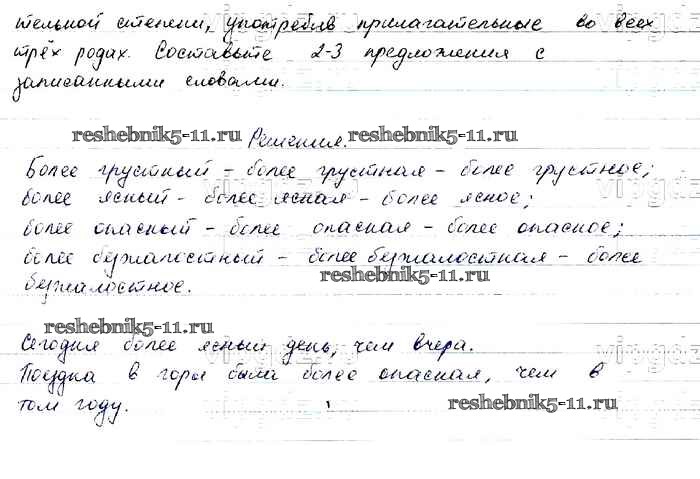 тельной степени, употребив прилагательные во всех
трёх родах. Составьте 2-3 предложения с
записанными словами.
reshebnik5-11.ru Решения. reshebnik5-11.ru
Более грустный - более грустная - более грустное;
более ясный - более ясная - более ясное;
более опасный - более опасная - более опасное;
более безжалостный - более безжалостная - более
reshebnik5-11.ru
безжалостное.
reshebnik5-11.ru
Сегодня более ясный день, чем вчера.
Поездка в горы была более опасная, чем в
том году.
reshebnik5-11.ru